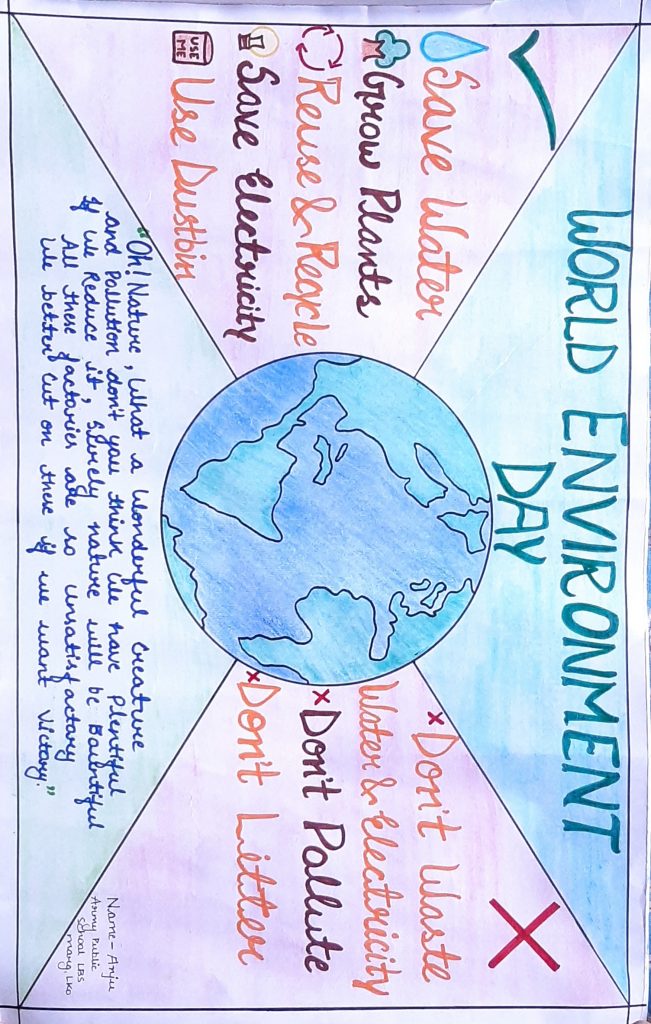 WORLD ENVIRONMENT
DAY
Save Water
Grow Plants
Reuse & Recycle
Save Electricity
USE
ME
Use Dustbin
× Don't Waste
Water & Electricity
× Don't Pollute
× Don't Litter
"Oh! Nature, What a Wonderful Creature
and Pollution don't you think we have Plentiful
If we Reduce it, surely nature will be Bountiful
All these factories are so unsatisfactory
We better cut on these if we want Victory."
Name-Anju
Army Public
School LBS
marg, LKO